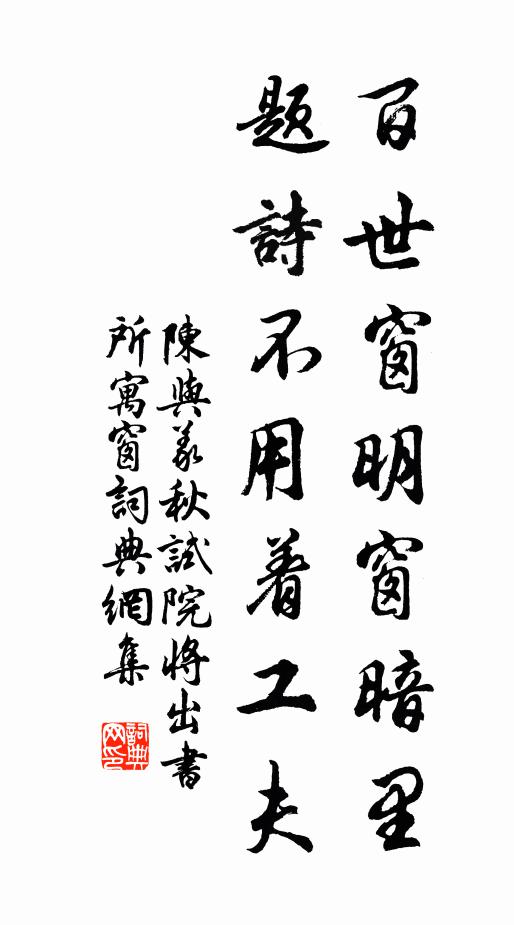 百世窗明窗暗里
題詩不用着工夫
陳與義秋試院將出書
所寓窗詞典網集
詞典
网印